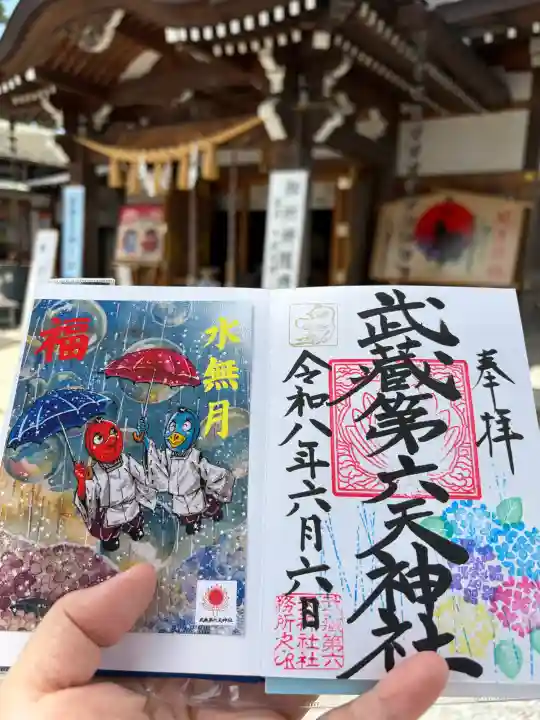 福
水無月
武蔵第六天神社
奉拝
武蔵第六天神社
令和八年六月六日
武蔵第六
天神社社
務所之印